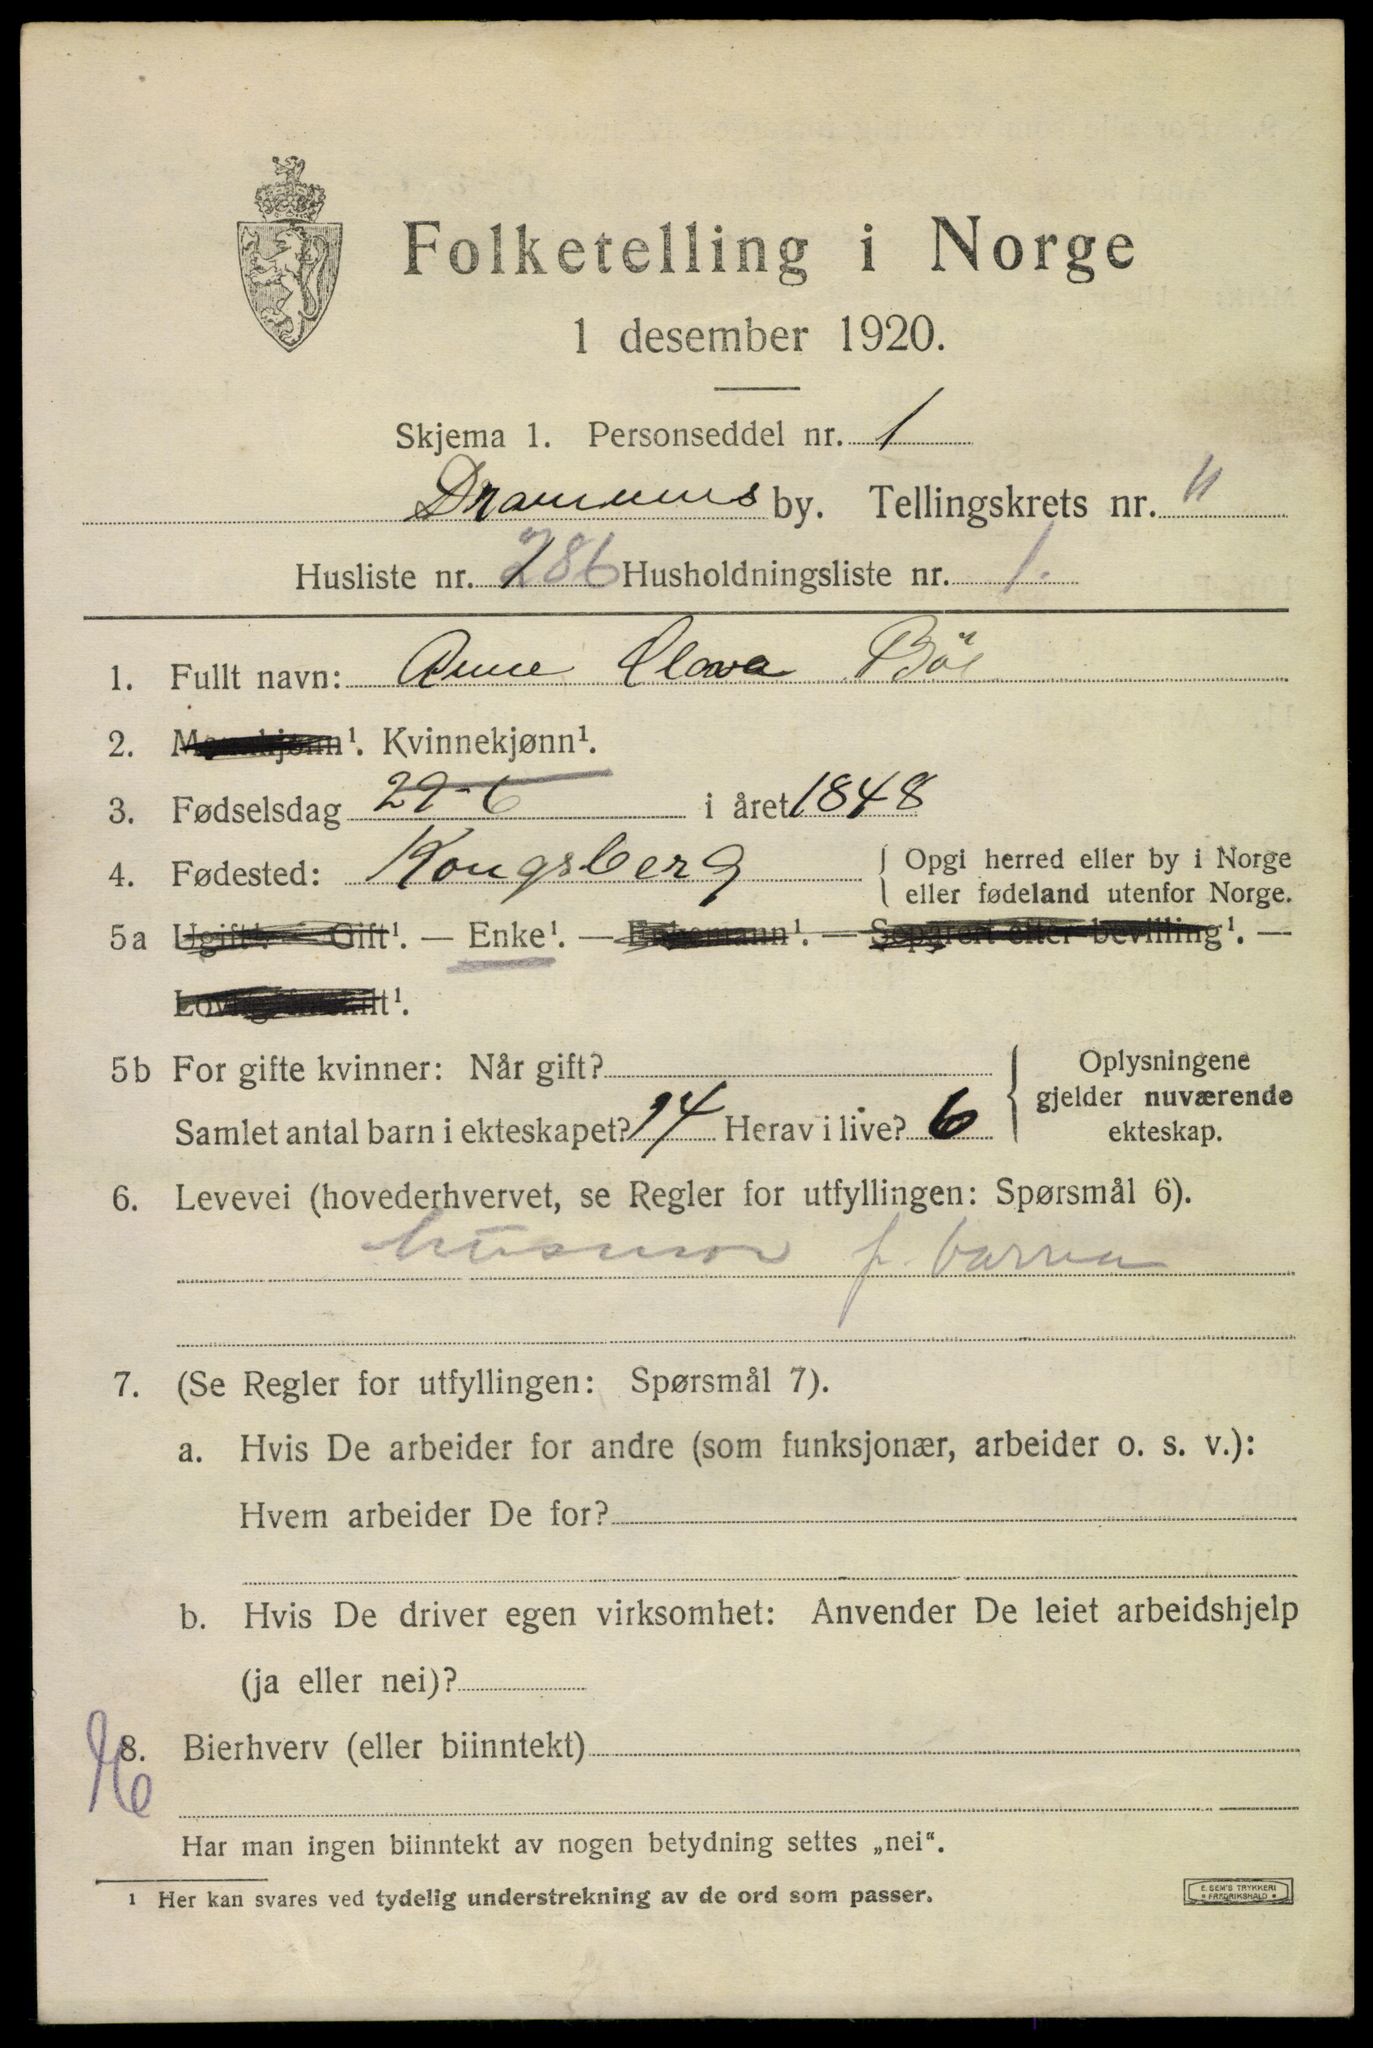 Folketelling i Norge
1 desember 1920.
Skjema 1. Personseddel nr. 1
Drammens by. Tellingskrets nr. 11
Husliste nr. 286 Husholdningsliste nr. 1.
1. Fullt navn: Anne Olava Böe
2. Mannkjønn¹. Kvinnekjønn¹.
3. Fødselsdag 29-6 i året 1848
4. Fødested: Kongsberg { Opgi herred eller by i Norge
eller fødeland utenfor Norge.
5a Ugift¹. — Gift¹. — Enke¹. — Enkemann¹. — Separert efter bevilling¹. —
Lovlig fraskilt¹.
5b For gifte kvinner: Når gift?
Samlet antal barn i ekteskapet? 14 Herav i live? 6
Oplysningene
gjelder nuværende
ekteskap.
6. Levevei (hovederhvervet, se Regler for utfyllingen: Spørsmål 6).
husmor f. barna
7. (Se Regler for utfyllingen: Spørsmål 7).
a. Hvis De arbeider for andre (som funksjonær, arbeider o. s. v.):
Hvem arbeider De for?
b. Hvis De driver egen virksomhet: Anvender De leiet arbeidshjelp
(ja eller nei)?
8. Bierhverv (eller biinntekt)
Har man ingen biinntekt av nogen betydning settes „nei“.
¹ Her kan svares ved tydelig understrekning av de ord som passer.
E. SEM'S TRYKKERI
FREDRIKSHALD